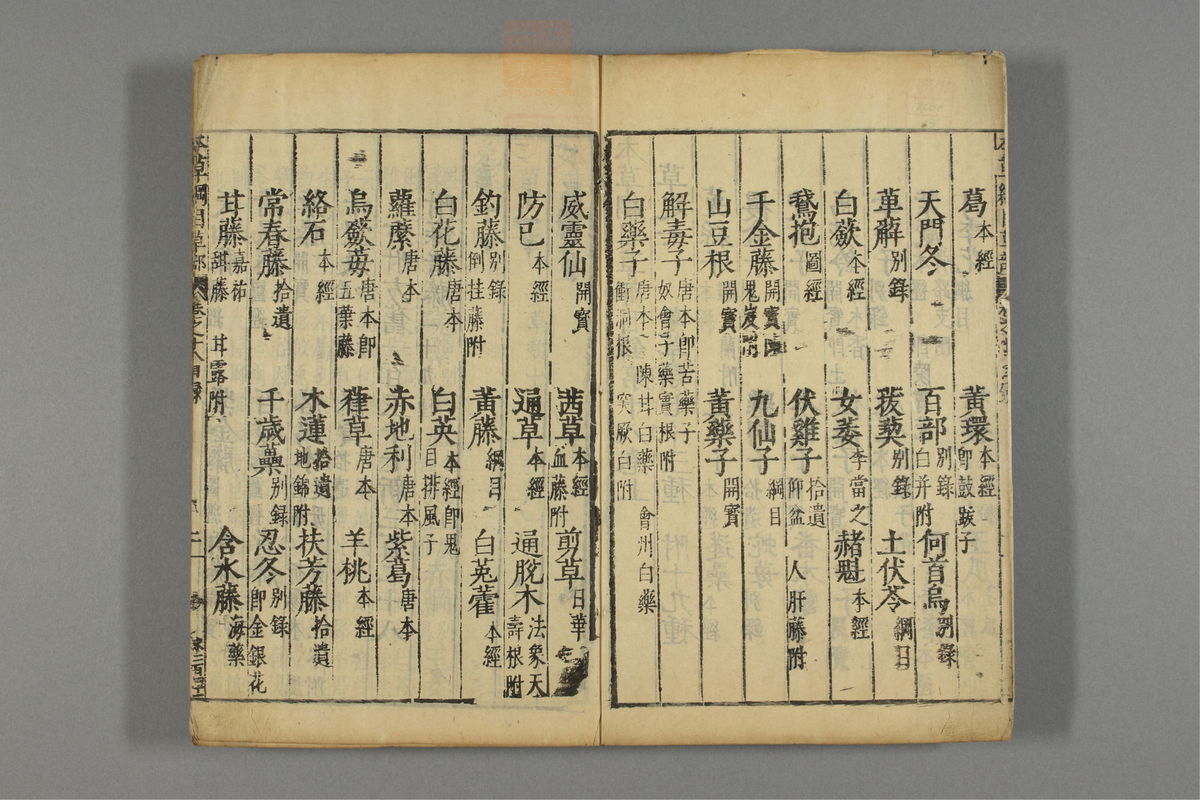 葛本經 黃環本經即鼓跋子
天門冬 百部別錄白并附 何首烏別錄
萆薢別錄 菝葜別錄 土伏苓綱目
白蘞本經 女萎李當之 赭魁本經
鵝抱圖經 伏雞子拾遺仰盆 人肝藤附
千金藤開寶 九仙子綱目
山豆根開寶 黃藥子開寶
解毒子唐本即苦藥子 奴會子藥實根附
白藥子唐本 陳家白藥 會州白藥 衝洞根 突厥白附
威靈仙開寶 茜草本經血藤附 剪草日華
防己本經 通草本經 通脫木法象天壽根附
釣藤別錄倒挂藤附 黃藤綱目 白兔藿本經
白花藤唐本 白英本經即鬼目排風子
蘿藦唐本 赤地利唐本 紫葛唐本
烏蘞莓唐本即五葉藤 葎草唐本 羊桃本經
絡石本經 木蓮拾遺地錦附 扶芳藤拾遺
常春藤拾遺 千歲虆別錄 忍冬別錄即金銀花
甘藤嘉祐甜藤 甘露附 含水藤海藥
本草綱目草部